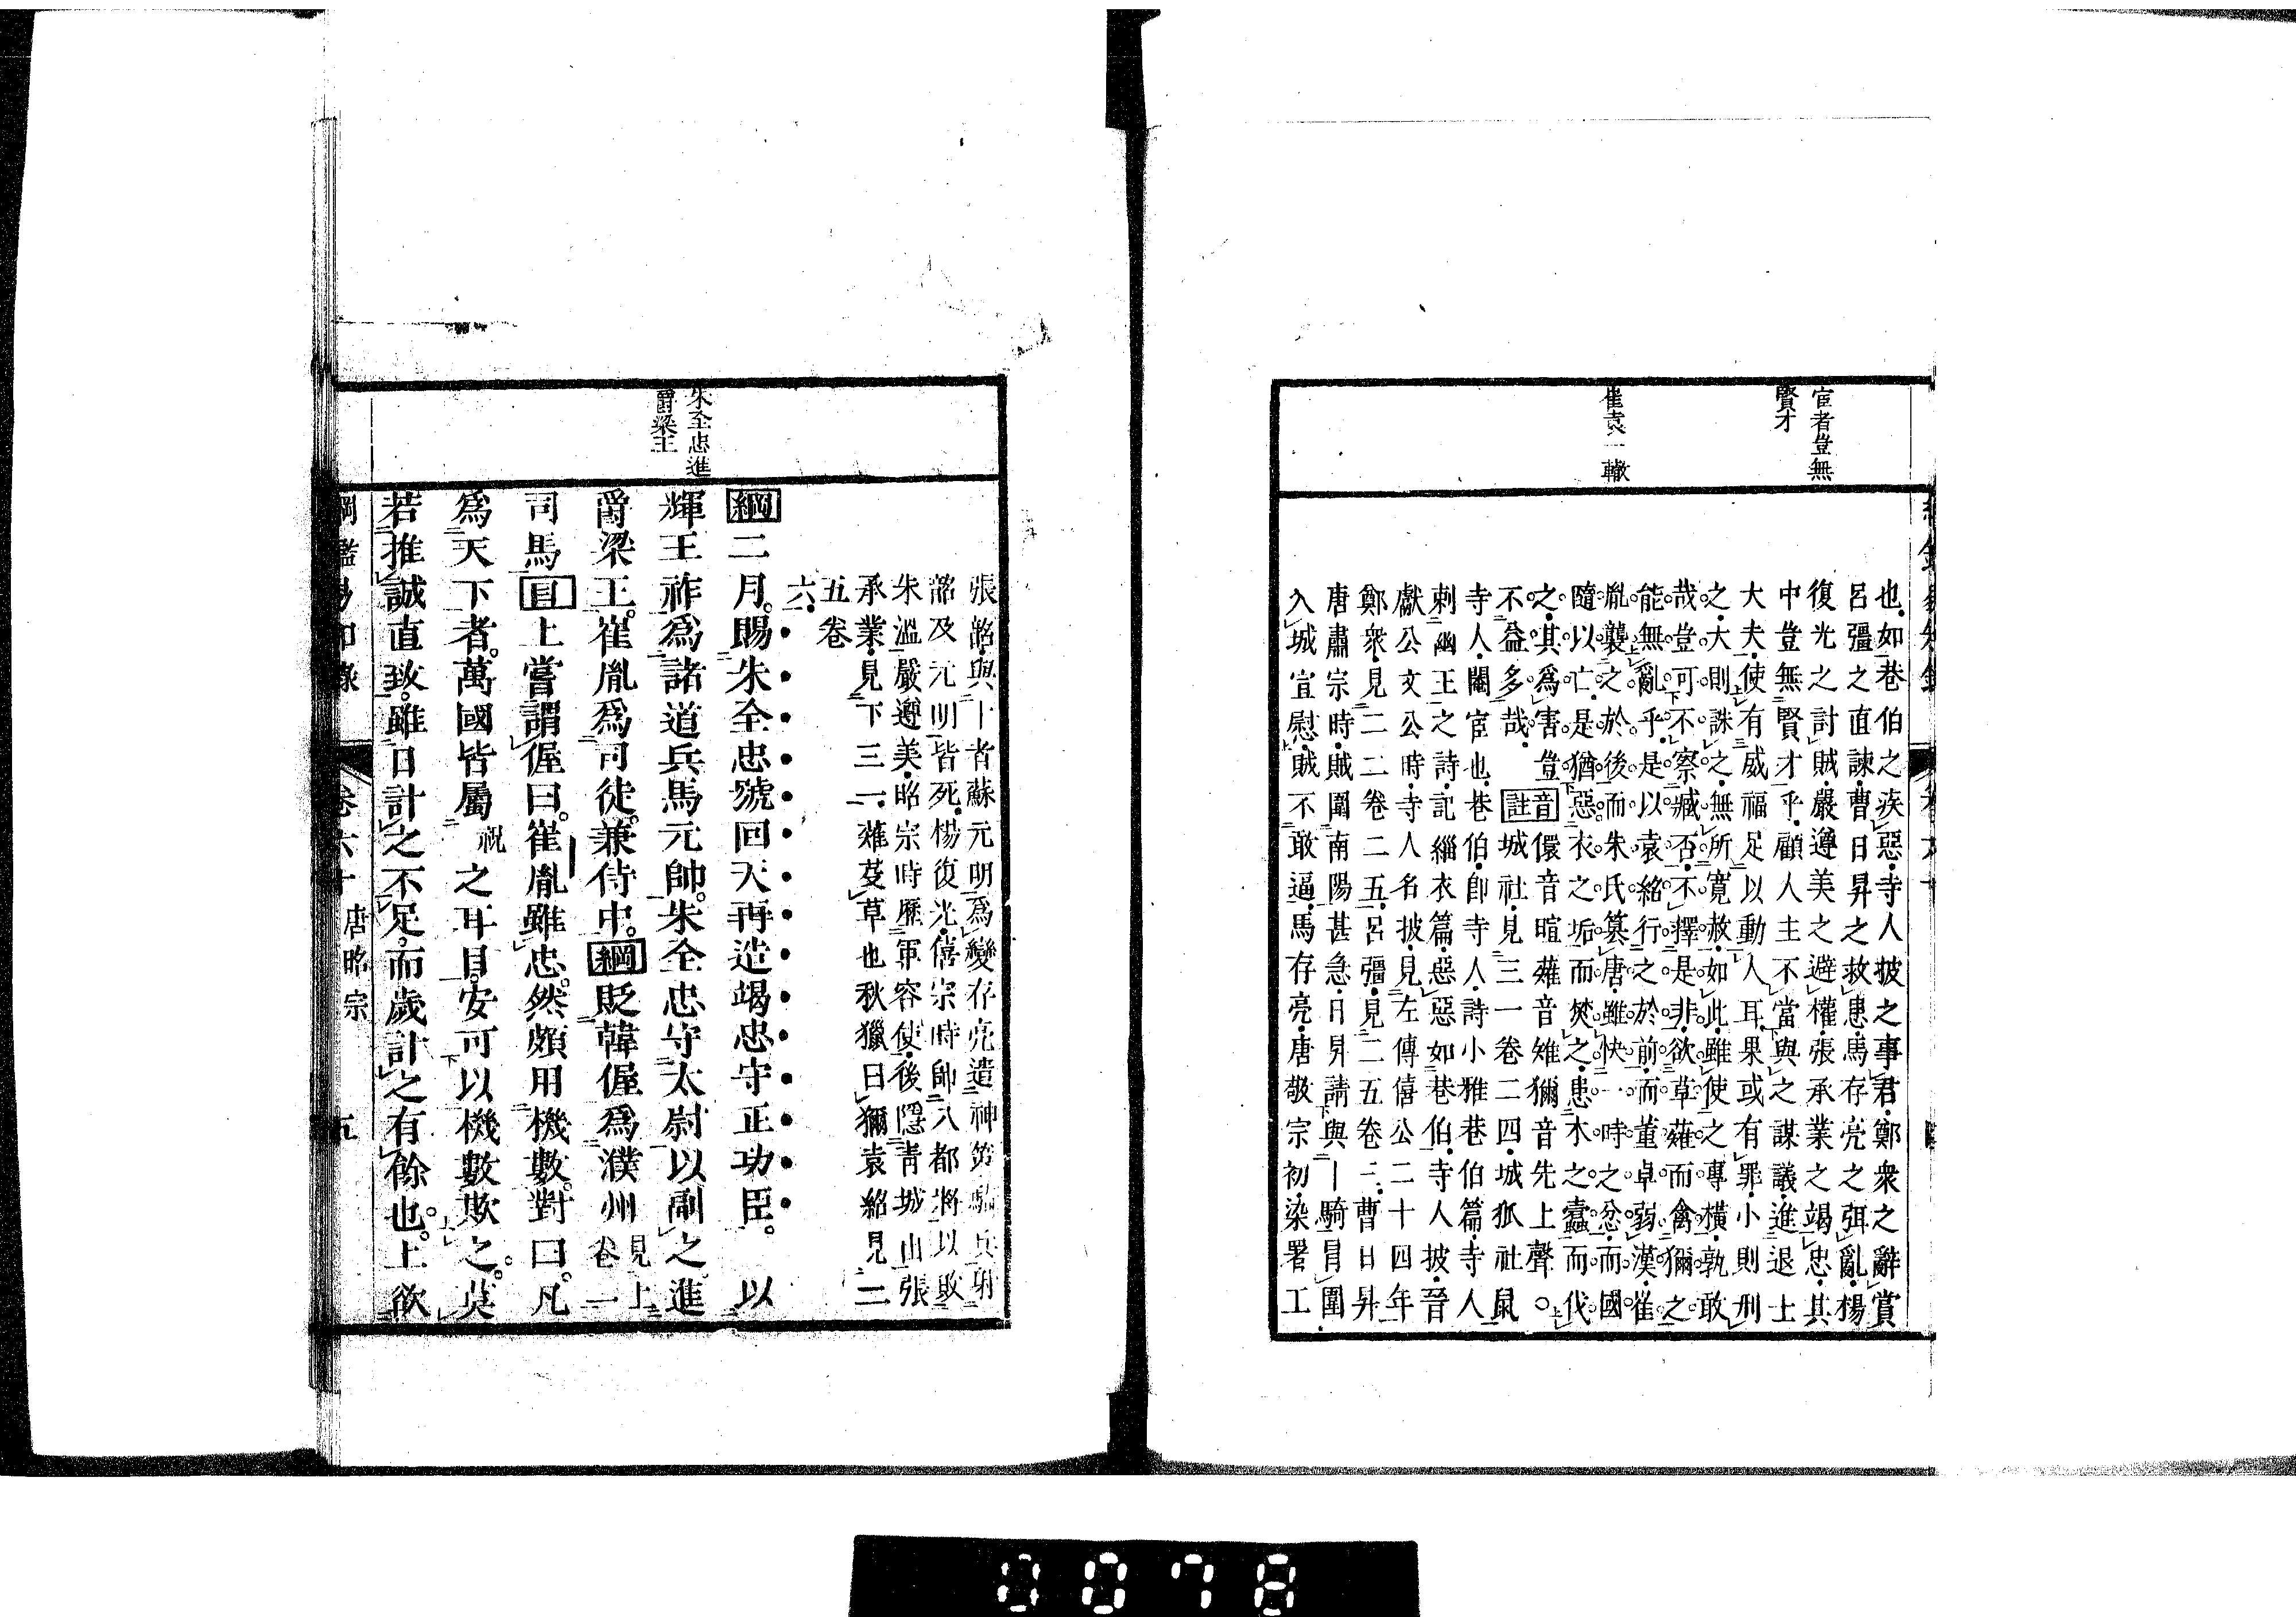 宦者豈無
賢才
崔袁一轍
也如巷伯之疾惡寺人披之事君鄭衆之辭賞
呂彊之直諫曹日昇之救患馬存亮之弭亂楊
復光之討賊嚴遵美之避權張承業之竭忠其
中豈無賢才乎顧人主不當與之謀議進退士
大夫使有威福足以動人耳果或有罪小則刑
之大則誅之無所寬赦如此雖使之專橫孰敢
哉豈可不察臧否不擇是非欲草薙而禽獮之
能無亂乎是以袁紹行之於前而董卓弱漢崔
胤襲之於後而朱氏簒唐雖快一時之忿而國
隨以亡是猶惡衣之垢而焚之患木之蠹而伐
之其爲害豈音儇音暄薙音雉獮音先上聲○
不益多哉註城社見三一卷二四城狐社鼠
寺人閹宦也巷伯卽寺人詩小雅巷伯篇寺人
刺幽王之詩記緇衣篇惡惡如巷伯寺人披晉
獻公文公時寺人名披見左傳僖公二十四年
鄭衆見二二卷二五呂彊見二五卷二曹日昇
唐肅宗時賊圍南陽甚急日昇請與十騎冒圍
入城宣慰賊不敢逼馬存亮唐敬宗初染署工
朱全忠進
爵梁王
張韶與卜者蘇元明爲變存亮遣神策騎兵射
韶及元明皆死楊復光僖宗時帥八都將以敗
朱溫嚴遵美昭宗時歷軍容使後隱靑城山張
承業見下三一薙芟草也秋獵曰獮袁紹見二
五卷
六
綱二月賜朱全忠號回天再造竭忠守正功臣以
輝王祚爲諸道兵馬元帥朱全忠守太尉以副之進
爵梁王崔胤爲司徒兼侍中綱貶韓偓爲濮州見上卷一
司馬目上嘗謂偓曰崔胤雖忠然頗用機數對曰凡
爲天下者萬國皆屬祝之耳目安可以機數欺之莫
若推誠直致雖日計之不足而歲計之有餘也上欲
綱鑑易知錄 卷六十 唐昭宗 五
0078